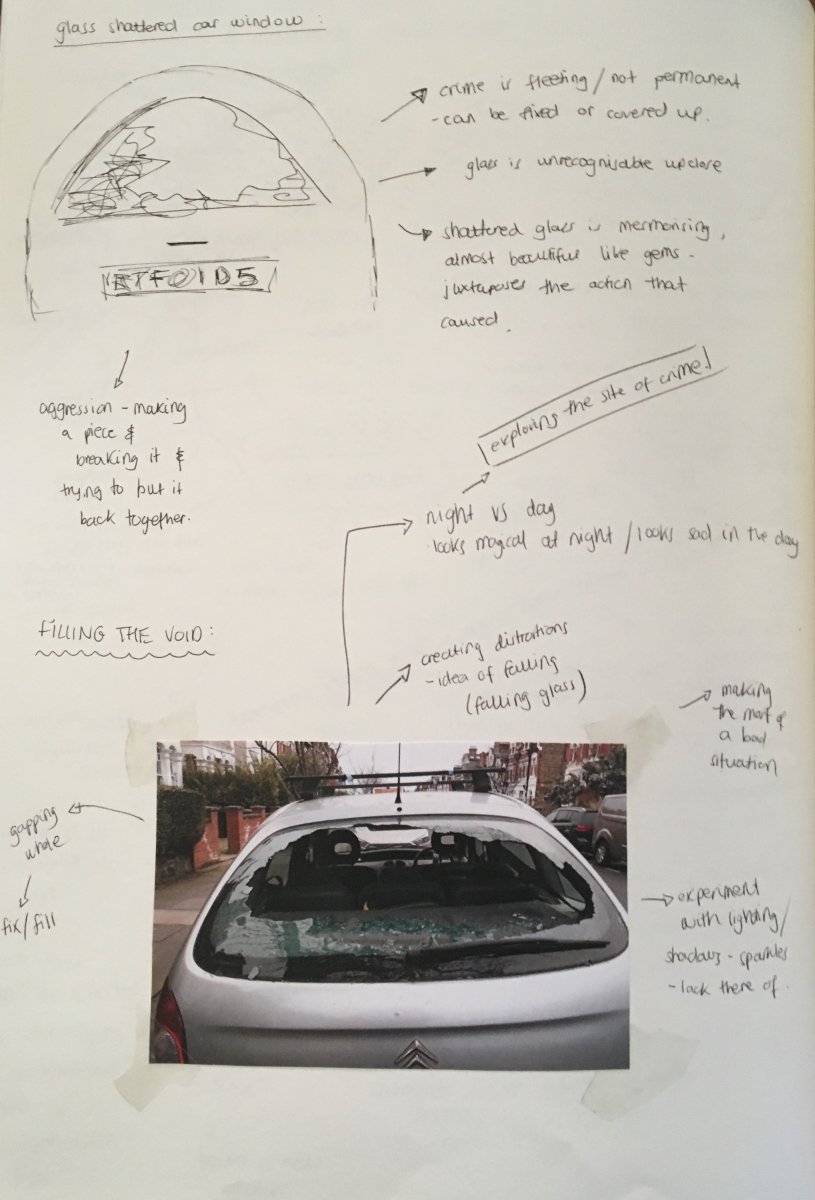 glass shattered car window :
crime is fleeting / not permanent
- can be fixed or covered up.
glass is unrecognisable upclose
shattered glass is mermorising,
almost beautiful like gems -
juxtaposes the action that
caused.
aggression - making
a piece &
breaking it &
trying to put it
back together.
exploring the site of crime!
night vs day
looks magical at night / looks sad in the day
FILLING THE VOID :
creating distrations
- idea of falling
(falling glass)
making
the most of
a bad
situation
gapping
whole
fix / fill
experiment
with lighting /
shadows - sparkles
- lack there of.